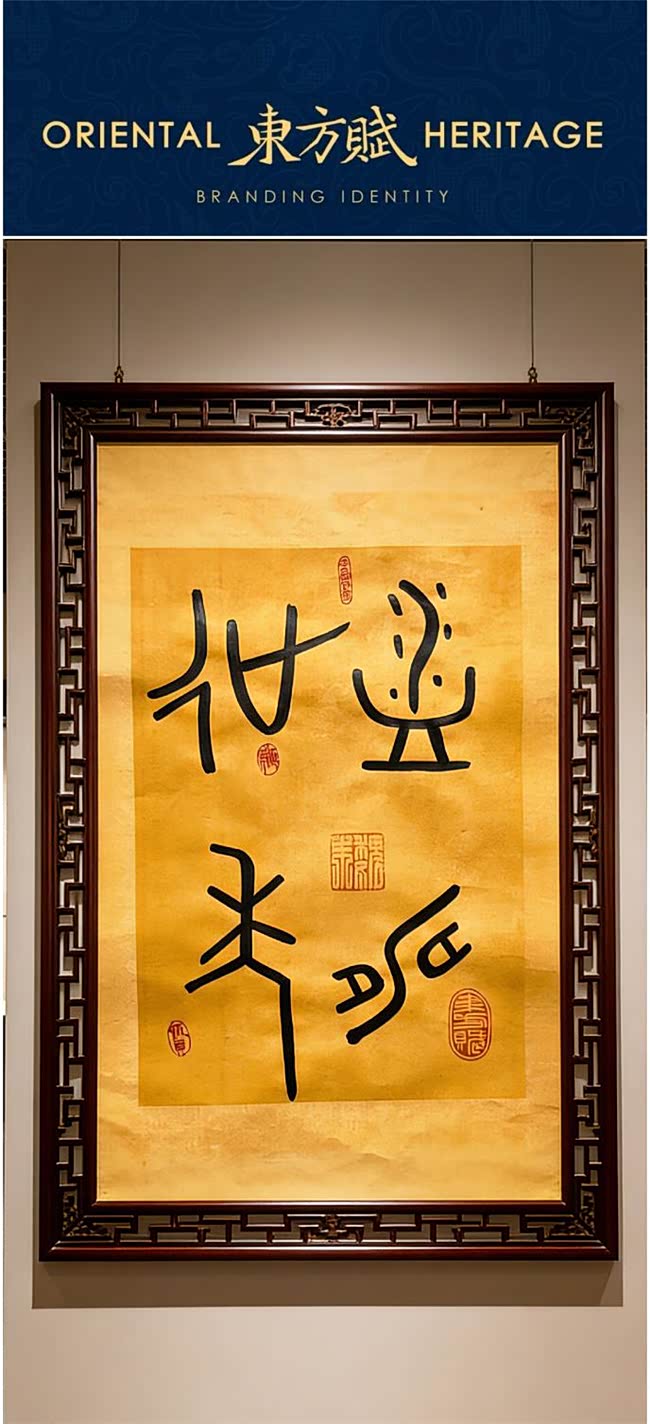 ORIENTAL 東方賦 HERITAGE
BRANDING IDENTITY
益壽
延年
東方賦